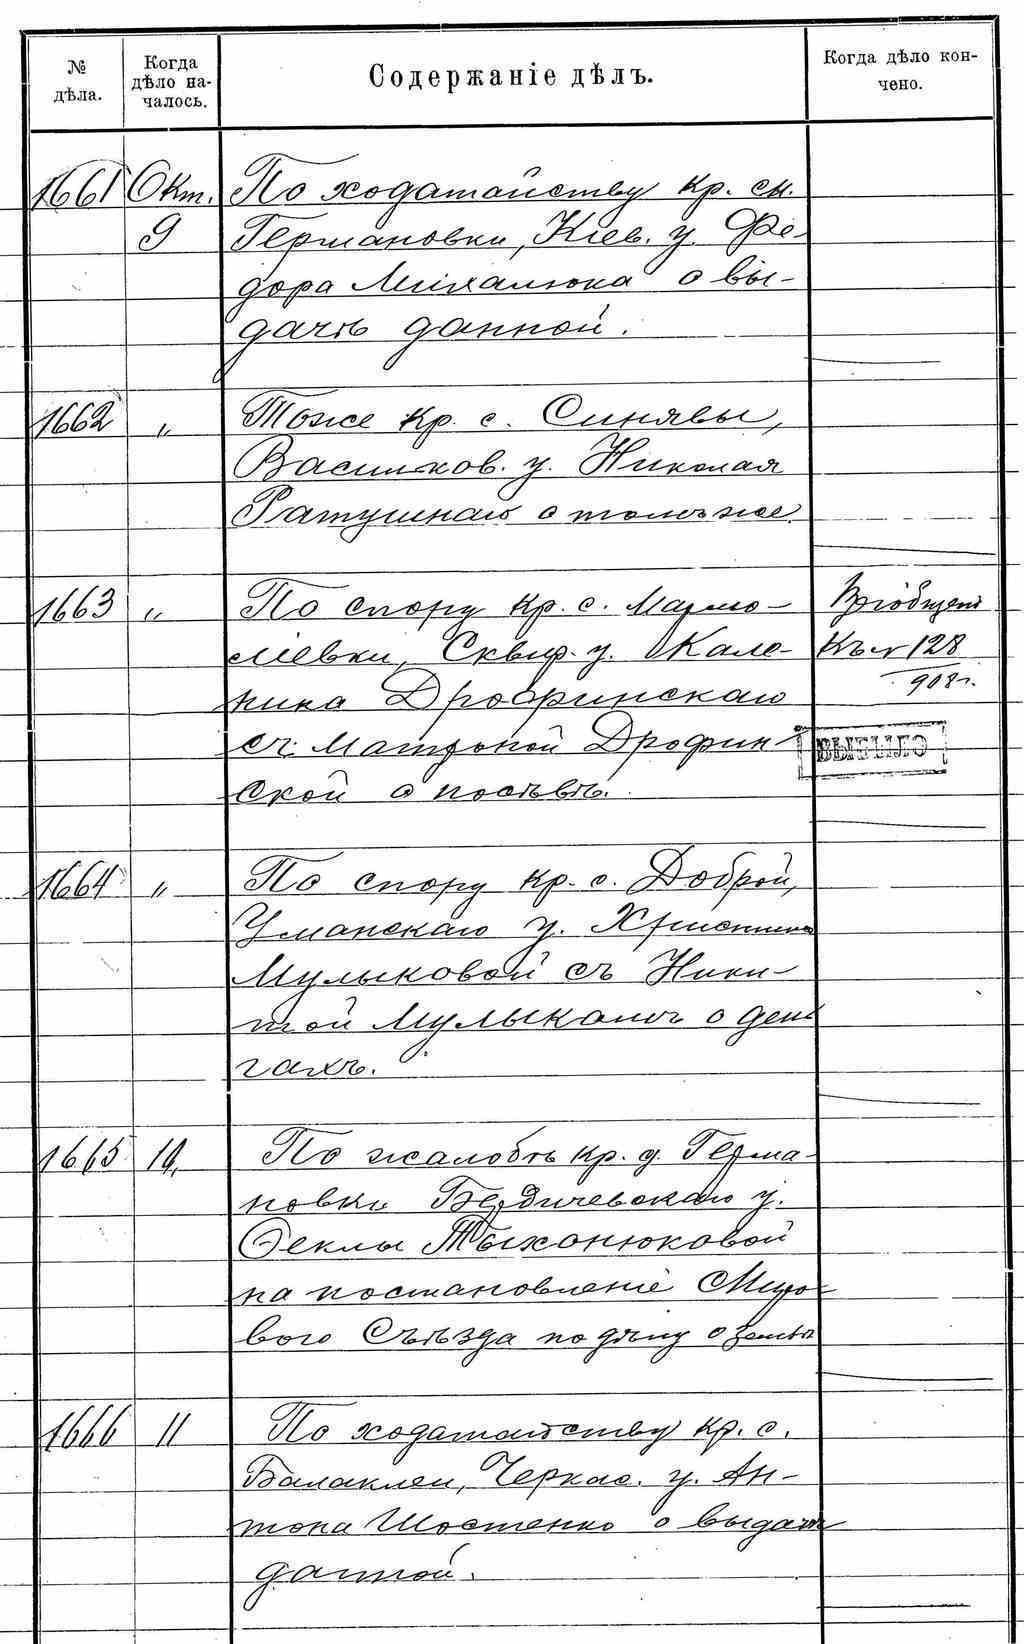 № дѣла.
Когда дѣло началось.
Содержаніе дѣлъ.
Когда дѣло кончено.
1661 Окт. По ходатайству кр. см.
9 Германовки, Кіев. у. Фе-
дора Михалюка о вы-
дачѣ данной.
1662 " Тоже кр. с. Синявы,
Васильков. у. Николая
Ратушнаго о томъ же.
1663 " По спору кр. с. Мармо- Пріобщено
ліевки, Сквир. у. Кале- Къ № 128
ника Дрофинскаго 908 г.
съ Матроной Дрофин- ВЫБЫЛО
ской о посѣвѣ.
1664 " По спору кр. с. Доброй,
Уманскаго у. Христины
Мулыковой съ Ники-
той Мулыкомъ о день
гахъ.
1665 11, По жалобѣ кр. д. Герма-
новки Бердичевскаго у.
Феклы Тыхонюковой
на постановленіе Миро-
вого Съѣзда по дѣлу о землѣ
1666 11 По ходатайству кр. с.
Балаклеи, Черкас. у. Ан-
тона Шостенко о выдачѣ
данной.